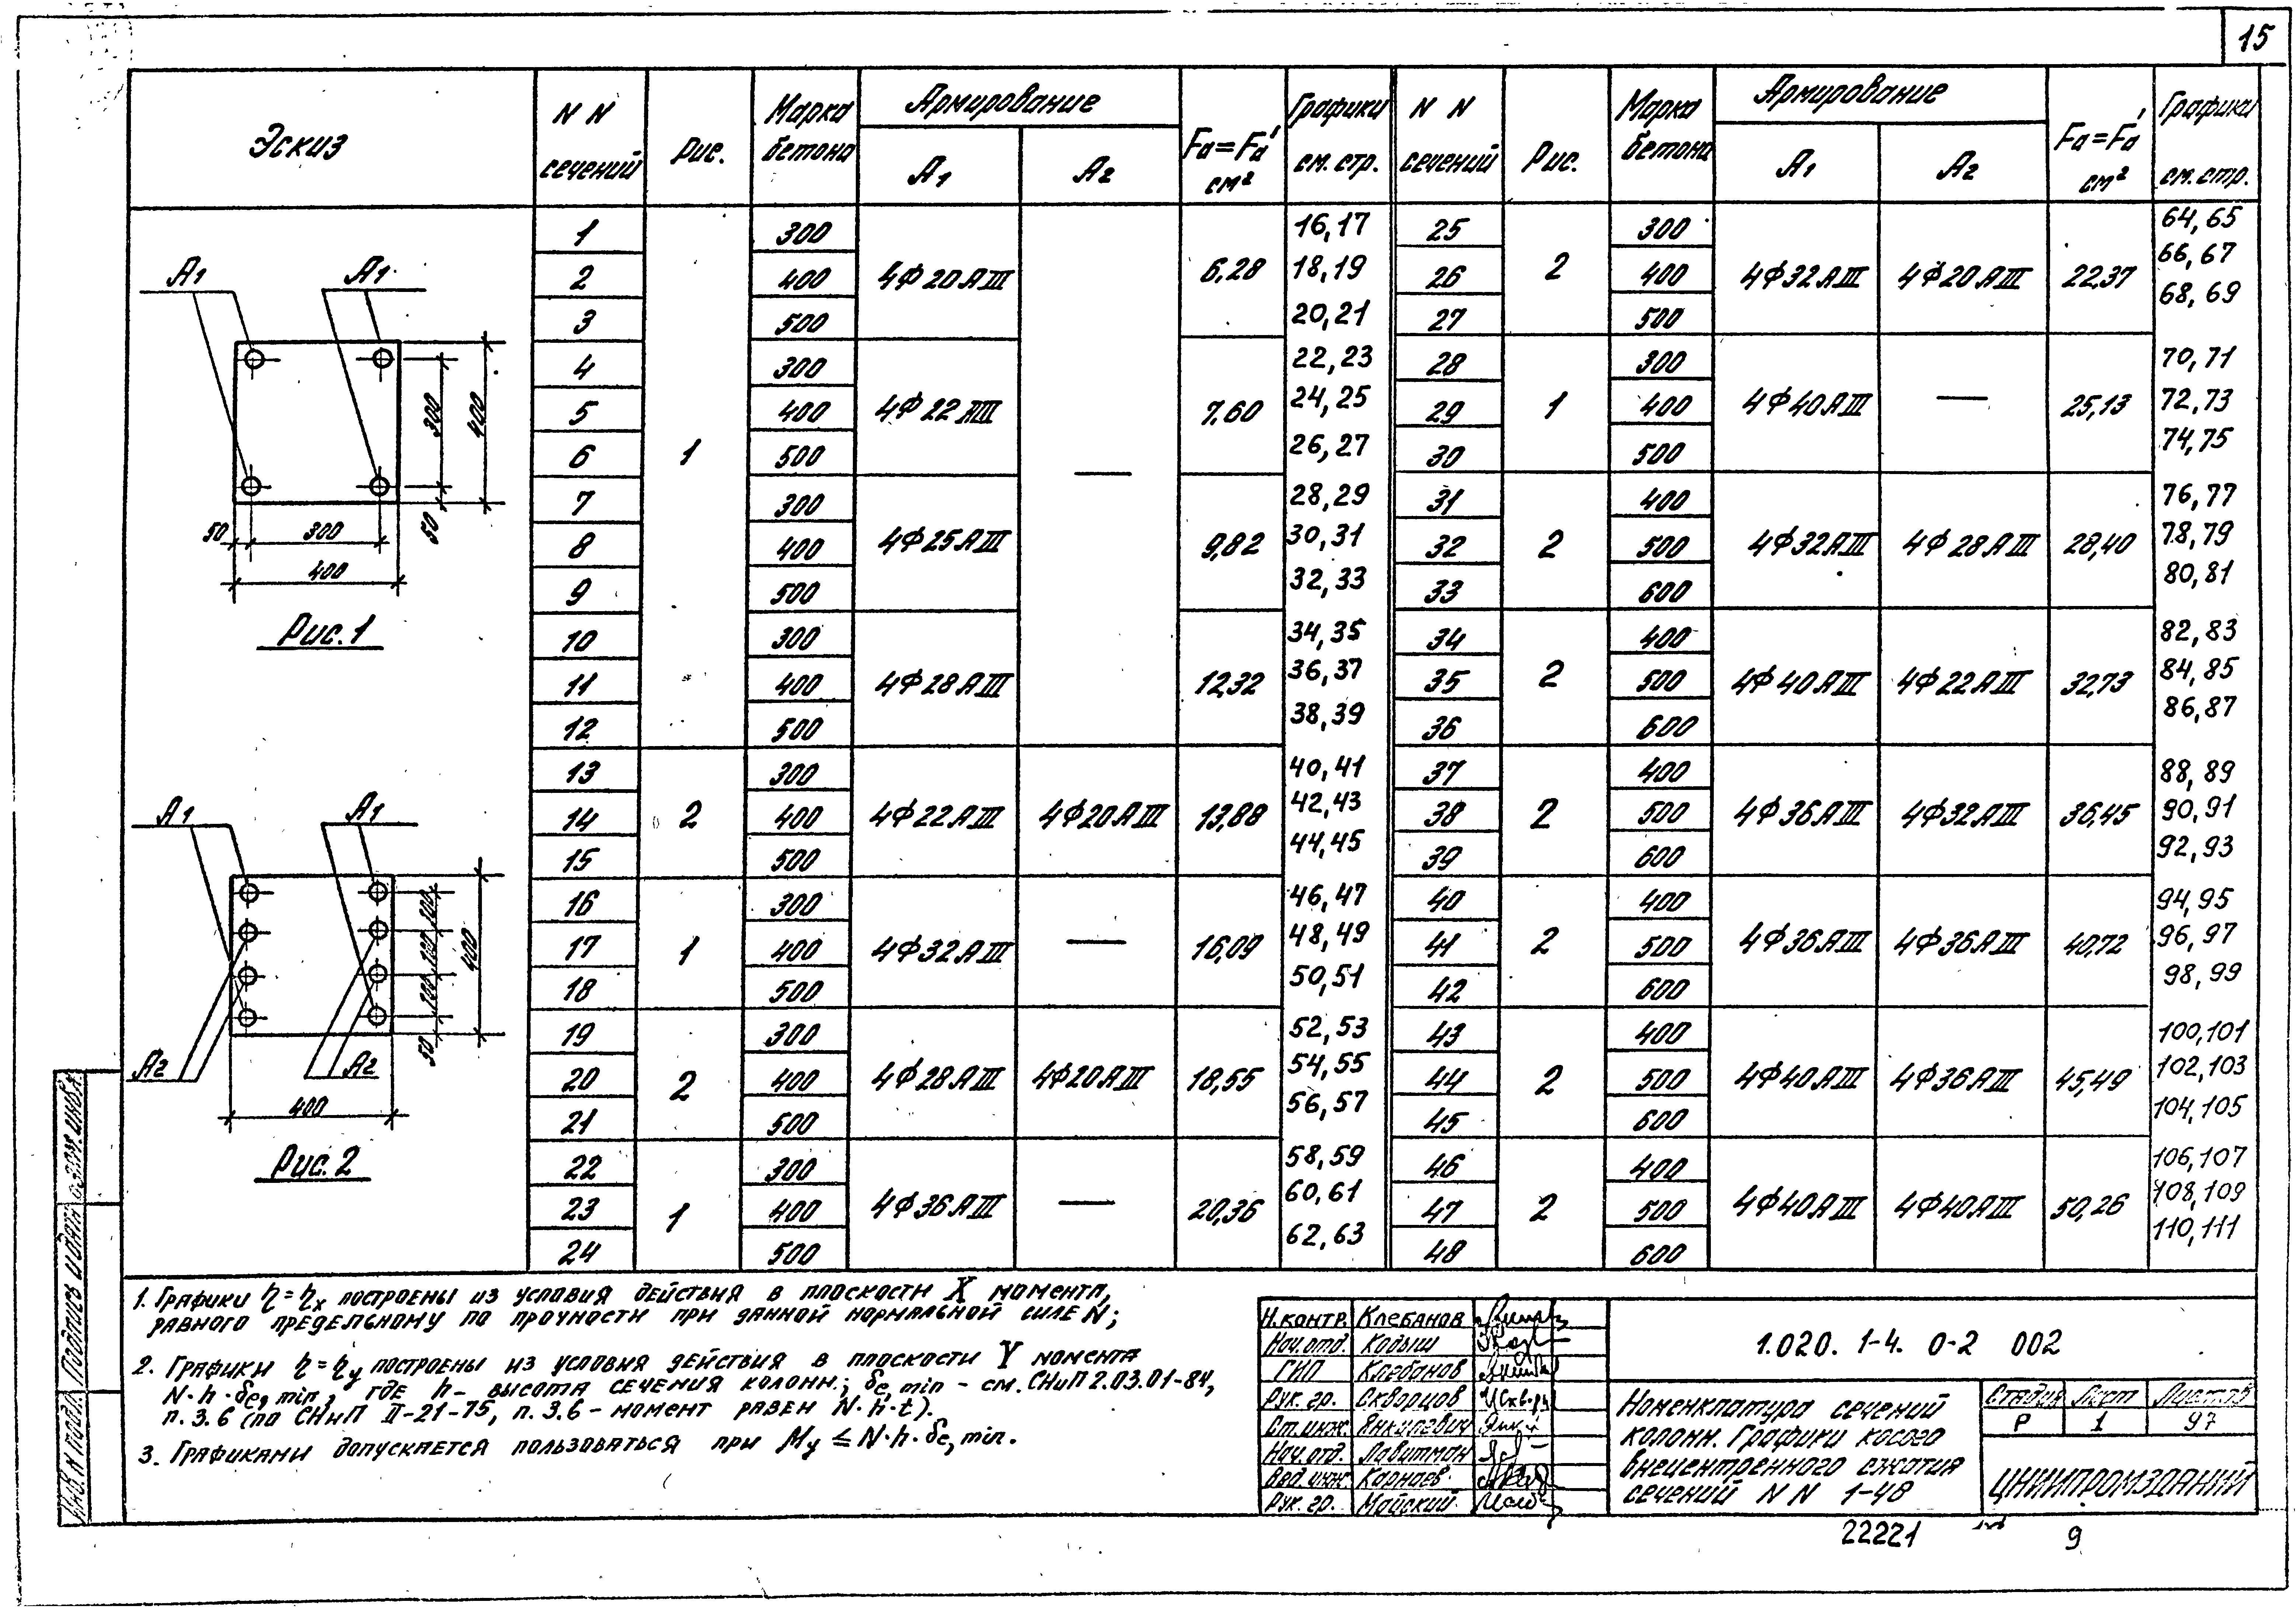 15
Эскиз | N N сечений | Рис. | Марка бетона | Армирование A1 | A2 | Fа=Fа' см² | Графики см. стр. | N N сечений | Рис. | Марка бетона | Армирование A1 | A2 | Fа=Fа' см² | Графики см. стр.
1 | 1 | 300 | 4Ф20АIII | — | 6,28 | 16,17 | 25 | 2 | 300 | 4Ф32АIII | 4Ф20АIII | 22,37 | 64,65
2 | 400 | 18,19 | 26 | 400 | 66,67
3 | 500 | 20,21 | 27 | 500 | 68,69
4 | 300 | 4Ф22АIII | 7.60 | 22,23 | 28 | 1 | 300 | 4Ф40АIII | — | 25,13 | 70,71
5 | 400 | 24,25 | 29 | 400 | 72,73
6 | 500 | 26,27 | 30 | 500 | 74,75
7 | 300 | 4Ф25АIII | 9,82 | 28,29 | 31 | 2 | 400 | 4Ф32АIII | 4Ф28АIII | 28,40 | 76,77
8 | 400 | 30,31 | 32 | 500 | 78,79
9 | 500 | 32,33 | 33 | 600 | 80,81
10 | 300 | 4Ф28АIII | 12,32 | 34,35 | 34 | 2 | 400 | 4Ф40АIII | 4Ф22АIII | 32,73 | 82,83
11 | 400 | 36,37 | 35 | 500 | 84,85
12 | 500 | 38,39 | 36 | 600 | 86,87
13 | 2 | 300 | 4Ф22АIII | 4Ф20АIII | 13,88 | 40,41 | 37 | 2 | 400 | 4Ф36АIII | 4Ф32АIII | 36,45 | 88,89
14 | 400 | 42,43 | 38 | 500 | 90,91
15 | 500 | 44,45 | 39 | 600 | 92,93
16 | 1 | 300 | 4Ф32АIII | — | 16,09 | 46,47 | 40 | 2 | 400 | 4Ф36АIII | 4Ф36АIII | 40,72 | 94,95
17 | 400 | 48,49 | 41 | 500 | 96,97
18 | 500 | 50,51 | 42 | 600 | 98,99
19 | 2 | 300 | 4Ф28АIII | 4Ф20АIII | 18,55 | 52,53 | 43 | 2 | 400 | 4Ф40АIII | 4Ф36АIII | 45,49 | 100,101
20 | 400 | 54,55 | 44 | 500 | 102,103
21 | 500 | 56,57 | 45 | 600 | 104,105
22 | 1 | 300 | 4Ф36АIII | — | 20,36 | 58,59 | 46 | 2 | 400 | 4Ф40АIII | 4Ф40АIII | 50,26 | 106,107
23 | 400 | 60,61 | 47 | 500 | 108,109
24 | 500 | 62,63 | 48 | 600 | 110,111
A1 A1
300 400
50 300 50
400
Рис.1
A1 A1
100 100 100 400
50
A2 A2
400
Рис.2
1. Графики η=ηx построены из условия действия в плоскости X момента,
равного предельному по прочности при данной нормальной силе N;
2. Графики η=ηy построены из условия действия в плоскости Y момента
N·h·δe,min, где h – высота сечения колонн.; δe,min – см. СНиП 2.03.01-84,
п. 3.6 (по СНиП II-21-75, п. 3.6 – момент равен N·h·t).
3. Графиками допускается пользоваться при Mу ≤ N·h·δe,min.
Н.контр. Клебанов
Нач.отд. Кодыш
ГИП Клебанов
Рук. гр. Скворцов
Ст.инж. Янкилевич
Нач.отд. Лавитман
Вед. инж. Карнаев
Рук. гр. Майский
1.020. 1-4. 0-2 002
Номенклатура сечений
колонн. Графики косого
внецентренного сжатия
сечений N N 1-48
Стадия Лист Листов
Р 1 97
ЦНИИПРОМЗДАНИЙ
Инв. N подл. Подпись и дата
22221 9